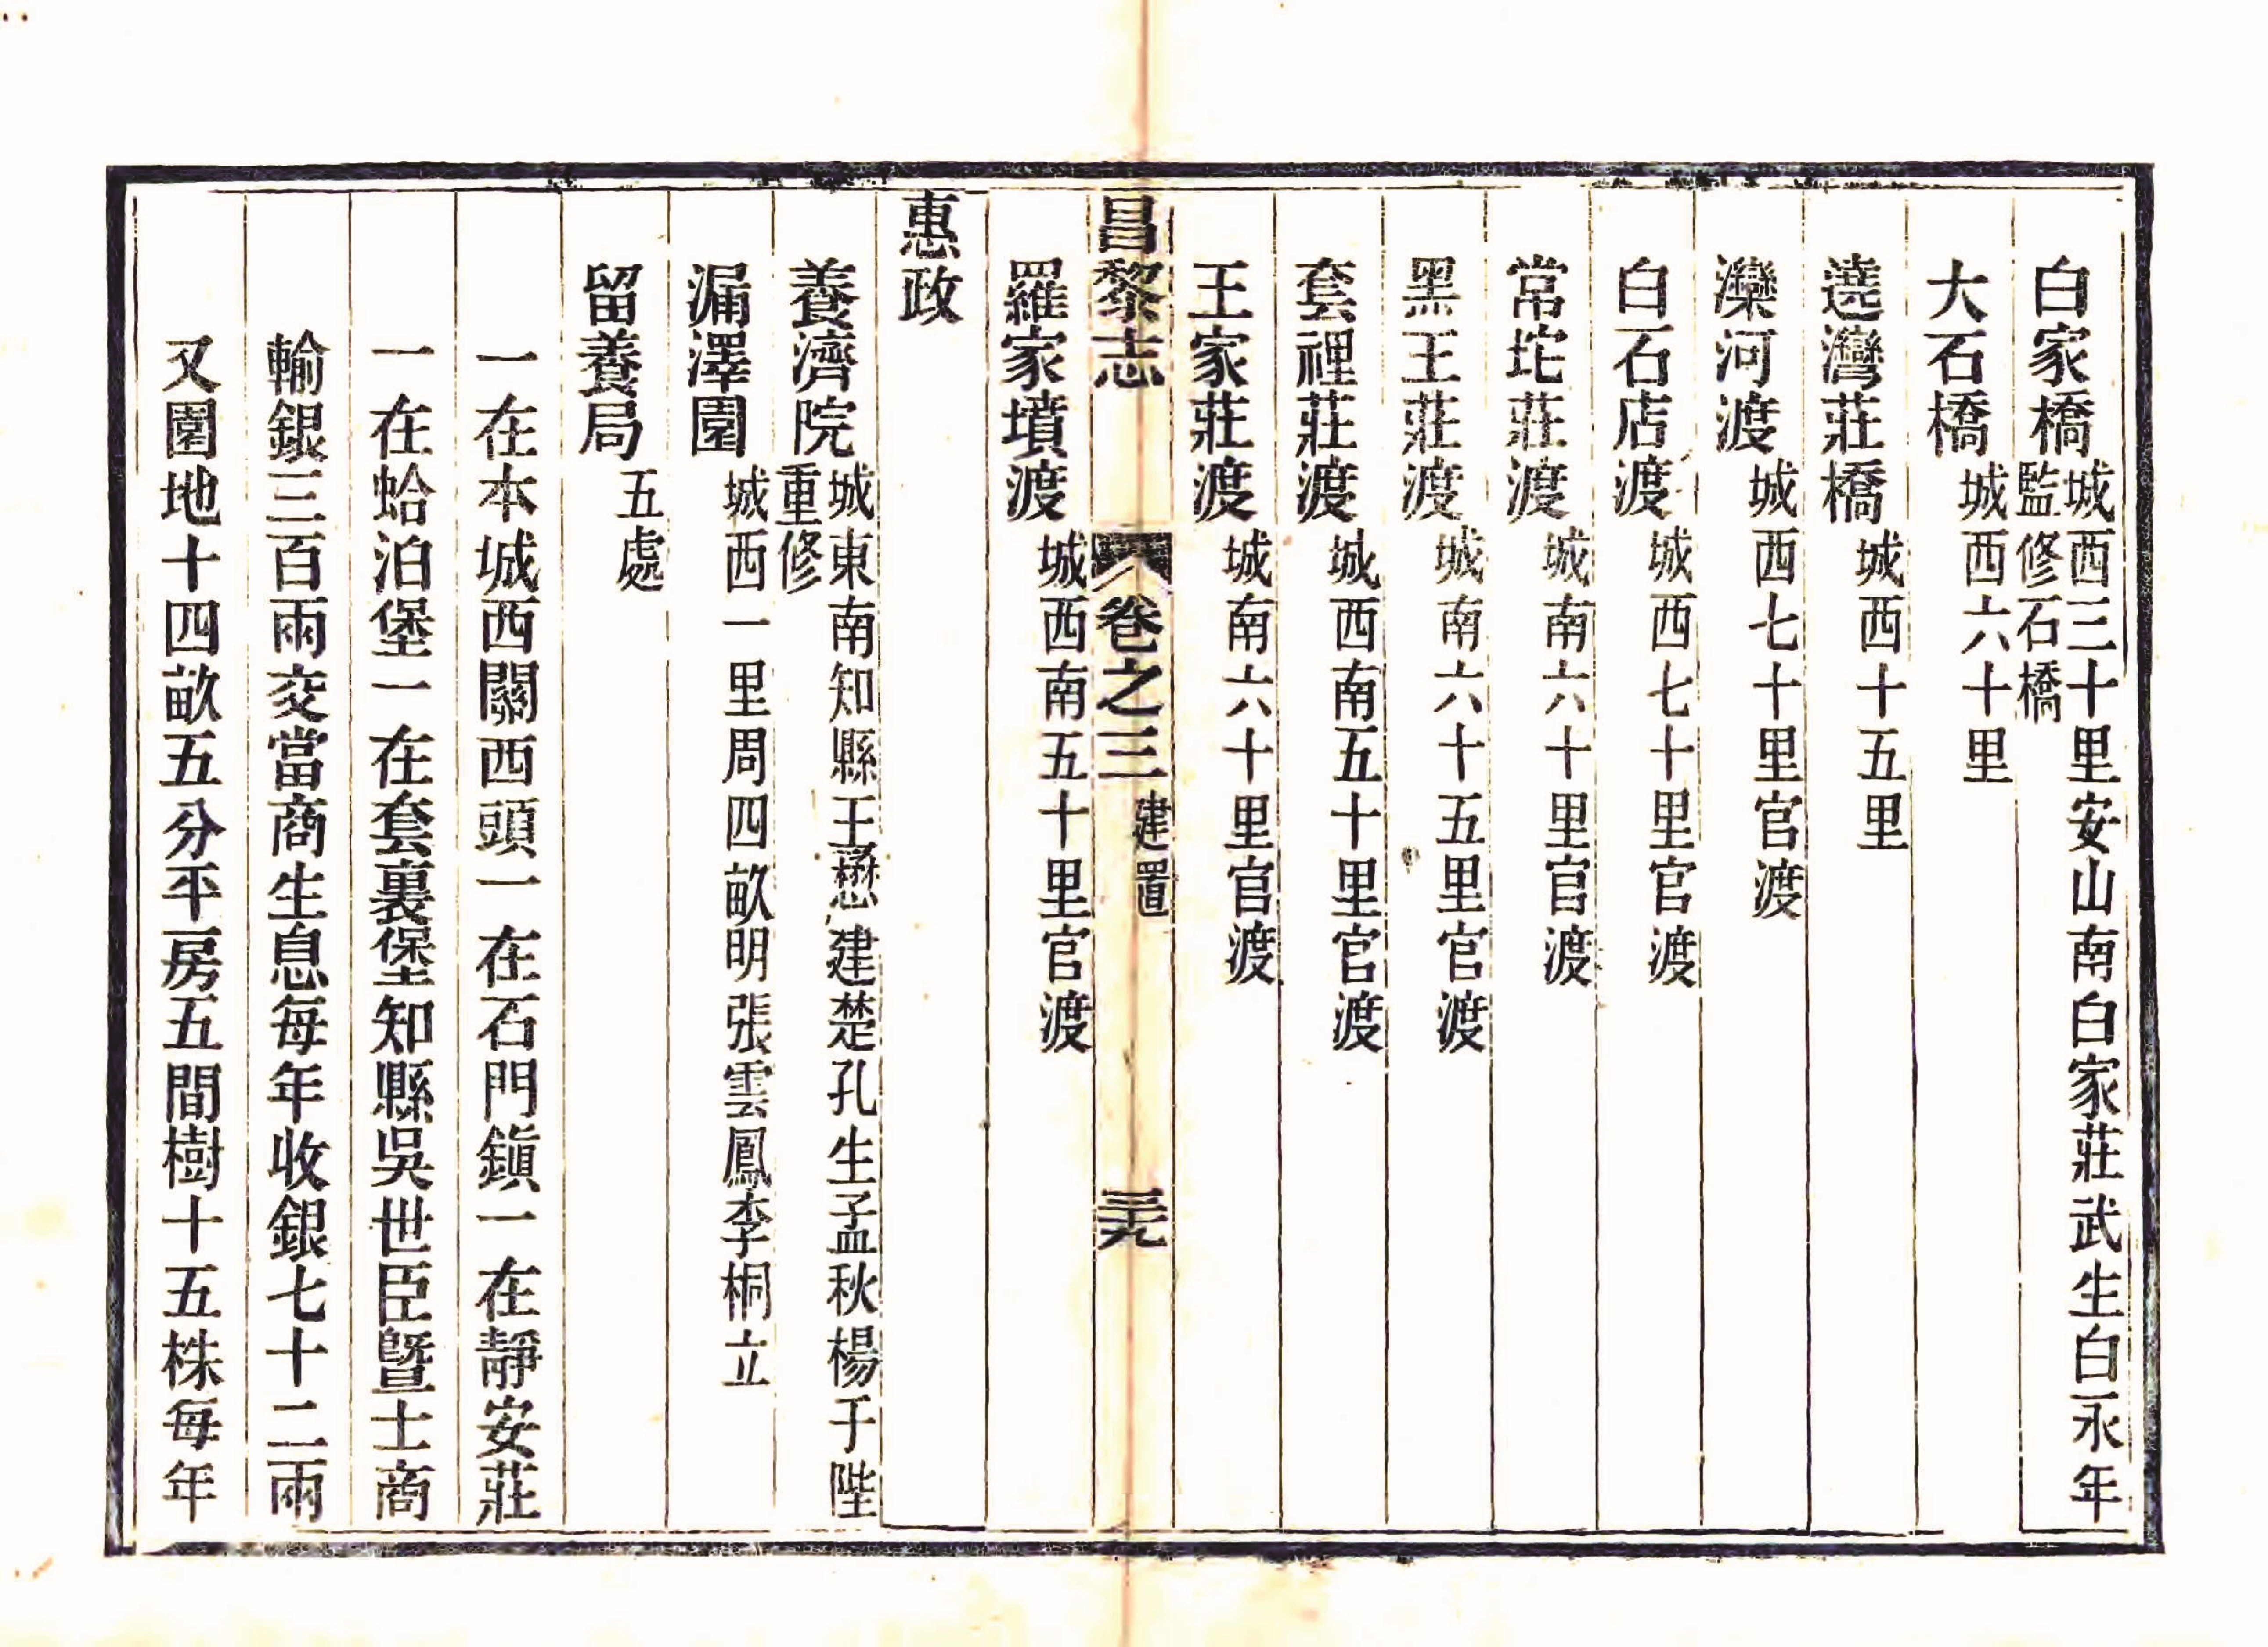 白家橋城西三十里安山南白家莊武生白永年監修石橋
大石橋城西六十里
遶灣莊橋城西十五里
灤河渡城西七十里官渡
白石店渡城西七十里官渡
常坨莊渡城南六十里官渡
黑王莊渡城南六十五里官渡
套裡莊渡城西南五十里官渡
王家莊渡城南六十里官渡
昌黎志 卷之三 建置 三十九
羅家墳渡城西南五十里官渡
惠政
養濟院城東南知縣王懋建楚孔生孟秋楊于陛重修
漏澤園城西一里周四畝明張雲鳳李桐立
留養局五處
一在本城西關西頭一在石門鎮一在靜安莊
一在蛤泊堡一在套裏堡知縣吳世臣曁士商
輸銀三百兩交當商生息每年收銀七十二兩
又園地十四畝五分平房五間樹十五株每年